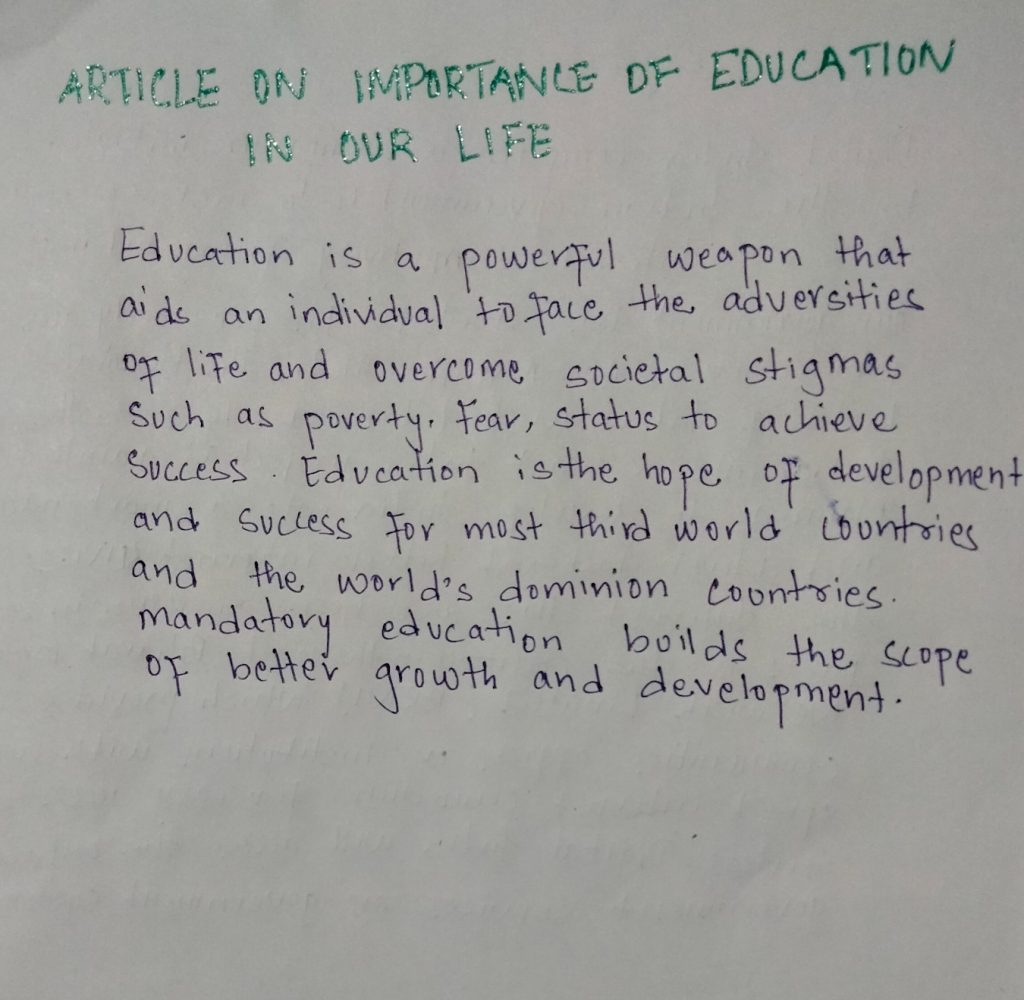 ARTICLE ON IMPORTANCE OF EDUCATION
IN OUR LIFE
Education is a powerful weapon that
aids an individual to face the adversities
of life and overcome societal stigmas
Such as poverty. Fear, status to achieve
Success. Education is the hope of development
and Success For most third world countries
and the world's dominion countries.
mandatory education builds the scope
of better growth and development.